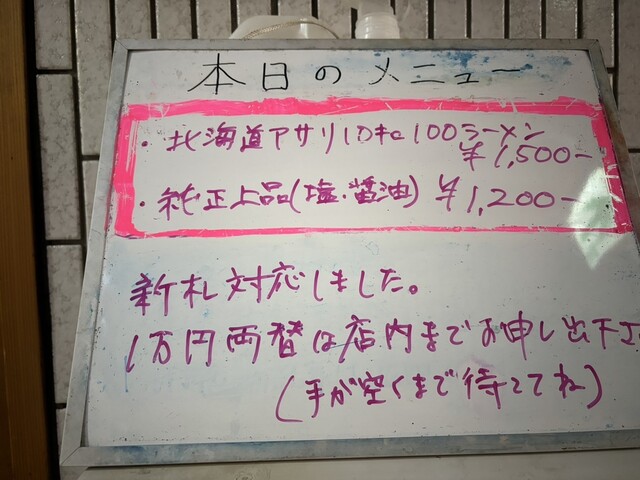 本日のメニュー
・北海道アサリ10キロ100ラーメン
¥1,500-
・純正上品(塩・醤油) ¥1,200-
新札対応しました。
1万円両替は店内までお申し出下
(手が空くまで待っててね)